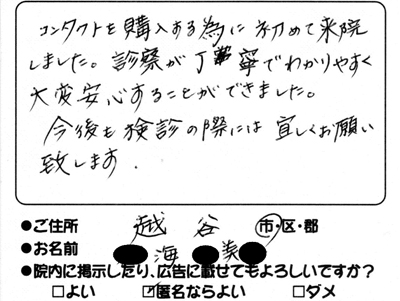 コンタクトを購入する為に初めて来院
しました。診察が丁寧でわかりやすく
大変安心することができました。
今後も検診の際には宜しくお願い
致します.
●ご住所 越谷 市・区・郡
●お名前 海 美
●院内に掲示したり、広告に載せてもよろしいですか?
□よい ☑匿名ならよい □ダメ